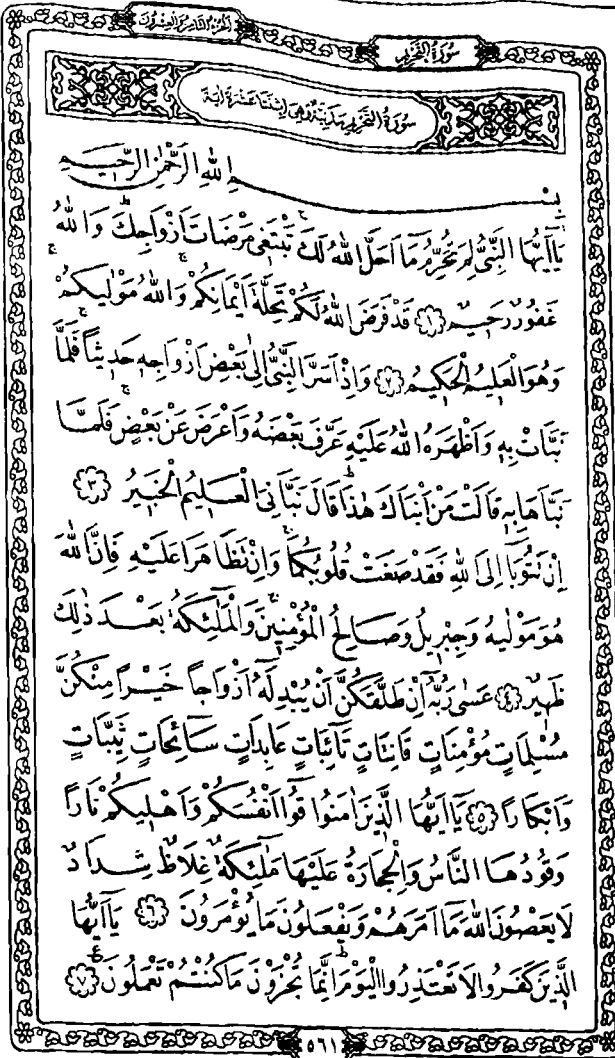 الجزء الثامن والعشرون
سورة التحريم
سُورَةُ التَّحْرِيمِ مَدَنِيَّةٌ وَهِيَ اِثْنَتَا عَشْرَةَ اٰيَةً
بِسْمِ اللّٰهِ الرَّحْمٰنِ الرَّحِيمِ
يَٓا اَيُّهَا النَّبِيُّ لِمَ تُحَرِّمُ مَٓا اَحَلَّ اللّٰهُ لَكَۚ تَبْتَغٖي مَرْضَاتَ اَزْوَاجِكَۜ وَاللّٰهُ
غَفُورٌ رَحٖيمٌ ﴿١﴾ قَدْ فَرَضَ اللّٰهُ لَكُمْ تَحِلَّةَ اَيْمَانِكُمْۚ وَاللّٰهُ مَوْلٰيكُمْۚ
وَهُوَ الْعَلٖيمُ الْحَكٖيمُ ﴿٢﴾ وَاِذْ اَسَرَّ النَّبِيُّ اِلٰى بَعْضِ اَزْوَاجِهٖ حَدٖيثاًۚ فَلَمَّا
نَبَّاَتْ بِهٖ وَاَظْهَرَهُ اللّٰهُ عَلَيْهِ عَرَّفَ بَعْضَهُ وَاَعْرَضَ عَنْ بَعْضٍۚ فَلَمَّا
نَبَّاَهَا بِهٖ قَالَتْ مَنْ اَنْبَاَكَ هٰذَاۜ قَالَ نَبَّاَنِيَ الْعَلٖيمُ الْخَبٖيرُ ﴿٣﴾
اِنْ تَتُوبَٓا اِلَى اللّٰهِ فَقَدْ صَغَتْ قُلُوبُكُمَاۚ وَاِنْ تَظَاهَرَا عَلَيْهِ فَاِنَّ اللّٰهَ
هُوَ مَوْلٰيهُ وَجِبْرٖيلُ وَصَالِحُ الْمُؤْمِنٖينَۚ وَالْمَلٰٓئِكَةُ بَعْدَ ذٰلِكَ
ظَهٖيرٌ ﴿٤﴾ عَسٰى رَبُّهُٓ اِنْ طَلَّقَكُنَّ اَنْ يُبْدِلَهُٓ اَزْوَاجاً خَيْراً مِنْكُنَّ
مُسْلِمَاتٍ مُؤْمِنَاتٍ قَانِتَاتٍ تَٓائِبَاتٍ عَابِدَاتٍ سَٓائِحَاتٍ ثَيِّبَاتٍ
وَاَبْكَاراً ﴿٥﴾ يَٓا اَيُّهَا الَّذٖينَ اٰمَنُوا قُٓوا اَنْفُسَكُمْ وَاَهْلٖيكُمْ نَاراً
وَقُودُهَا النَّاسُ وَالْحِجَارَةُ عَلَيْهَا مَلٰٓئِكَةٌ غِلَاظٌ شِدَادٌ
لَا يَعْصُونَ اللّٰهَ مَٓا اَمَرَهُمْ وَيَفْعَلُونَ مَا يُؤْمَرُونَ ﴿٦﴾ يَٓا اَيُّهَا
الَّذٖينَ كَفَرُوا لَا تَعْتَذِرُوا الْيَوْمَۜ اِنَّمَا تُجْزَوْنَ مَا كُنْتُمْ تَعْمَلُونَ ﴿٧﴾
٥٦١